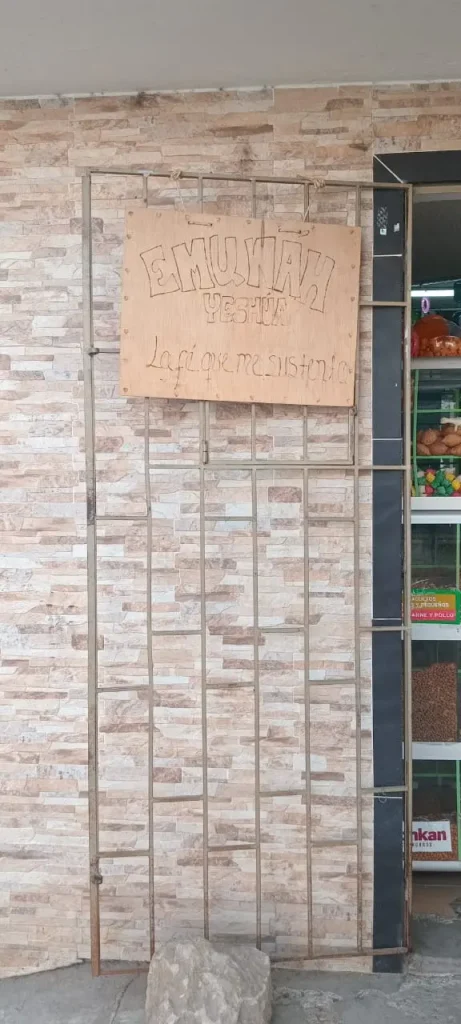 EMUNĀH
YESHUA
La fé que me sustenta
CARNE Y POLLO
nkan